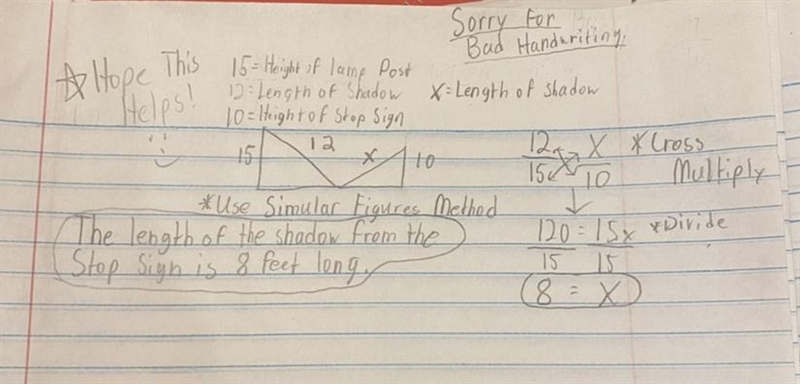 Sorry For
Bad Handwriting.
☆ Hope This
Helps!
:)
15=Height of lamp Post
12=Length of Shadow
X=Length of Shadow
10=Height of Stop Sign
15
12
x
10
12 X
15 10
*Cross
Multiply
*Use Simular Figures Method
120 = 15x
15 15
*Divide
8 = X
The length of the shadow from the
Stop Sign is 8 feet long.